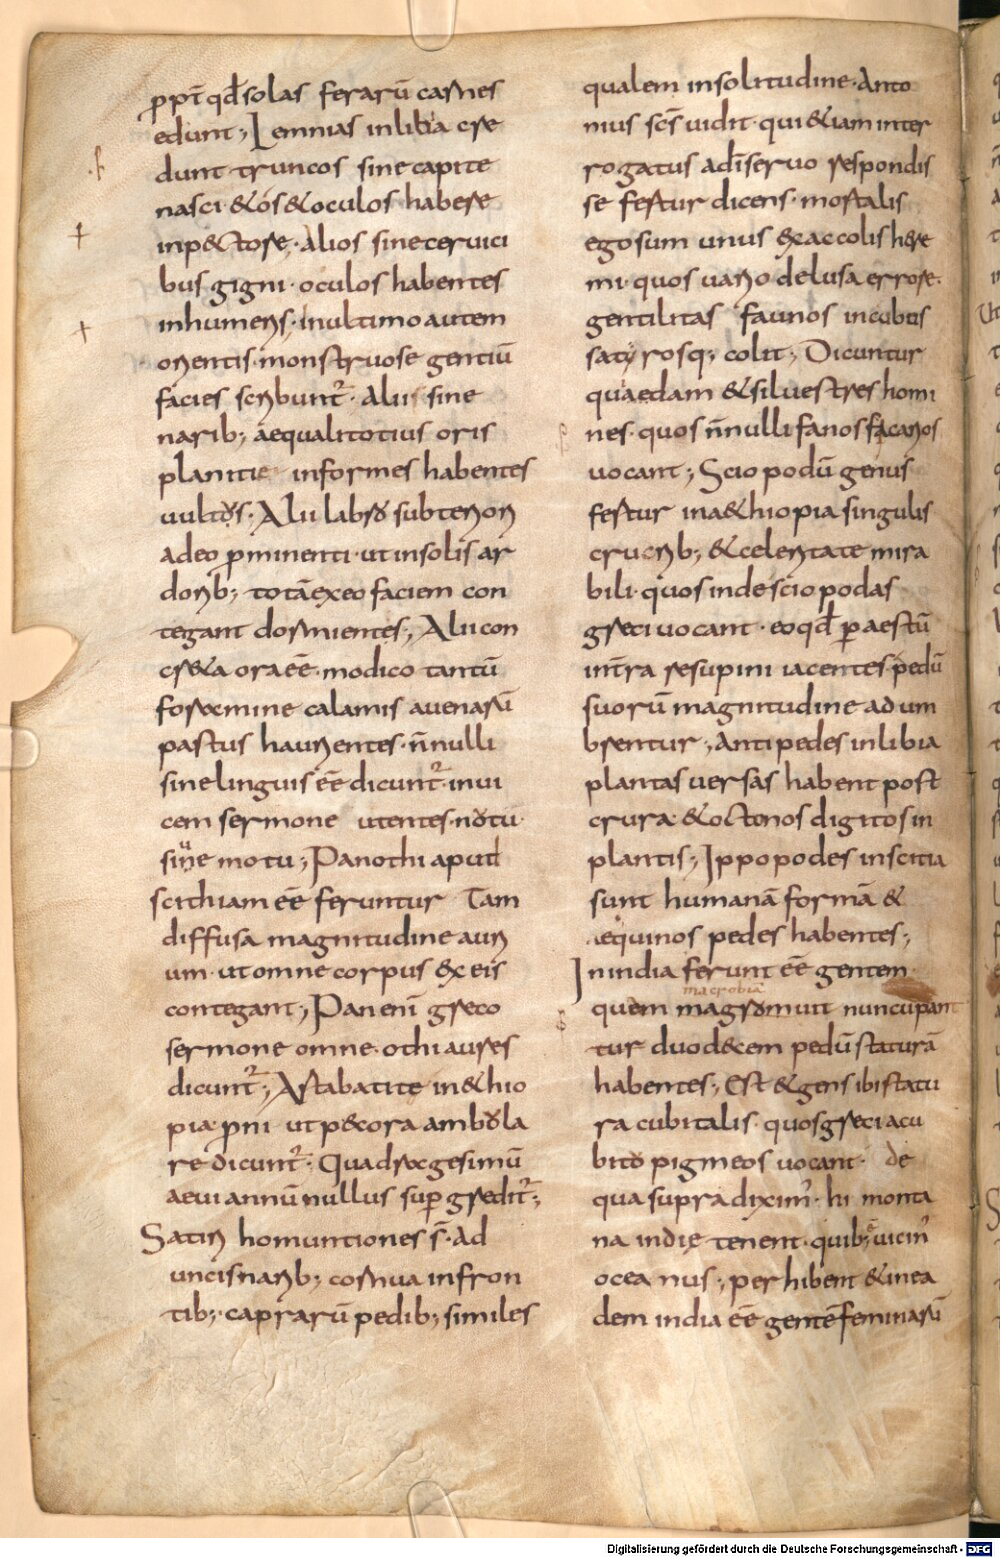 ꝓpt̄ qđ solas ferarū carnes
edunt; Lemnias inlibia cre
dunt truncos sine capite
nasci · & os & oculos habere
inp&tore · alios sine cervici
bus gigni · oculos habentes
inhumeris · inultimo autem
orientis · monstruose gentiū
facies scribunt᷑ · Alii sine
narib; aequali totius oris
planitie informes habentes
uultus · Alii labro subteriori
adeo ꝓminenti · ut insolis ar
dorib; totā exeo faciem con
tegant dormientes; Alii con
cr&a ora eē · modico tantū
foramine calamis auenarū
pastus haurientes · ñnulli
sine linguis eē dicunt᷑ · inui
cem sermone utentes · nutu
siue motu; Panothi apud
scithiam eē feruntur Tam
diffusa magnitudine auri
um · ut omne corpus ex eis
contegant; Pan enī greco
sermone omne · othi aures
dicunt᷑; Artabatite in&hio
pia ꝓni · ut p&cora ambula
re dicunt᷑ · Quadragesimū
aeui annū nullus suꝑ gredit᷑;
Satiri homuntiones s̄ · Ad
uncis narib; cornua infron
tib; · caprarū pedib; similes
qualem insolitudine · Anto
nius sc̄s uidit · qui &iam inter
rogatus ad̄i seruo respondis
se fertur dicens · mortalis
ego sum unus ex accolis here
mi · quos uario delusa errore ·
gentilitas faunos incubus
satyrosq; colit; Dicuntur
quaedam & siluestres homi
nes · quos ñnulli fanos ficarios
uocant; Sciopodū genus
fertur ina&hiopia singulis
crurib; & celeritate mira
bili · quos inde sciopodas
greci uocant · eo qđ ꝑ aestū
int̄ra resupini iacentes pedū
suorū magnitudine adum
brentur; Antipedes inlibia
plantas versas habent post
crura · & octonos digitos in
plantis; Ippopodes inscitia
sunt humanā formā &
aequinos pedes habentes;
Inindia ferunt eē gentem
macrobiā
quem nuncupant
tur duodecem pedū staturā
habentes; Est & gens ibi statu
ra cubitalis · quos greci acu
bito pigmeos uocant · de
qua supra dixim᷒ · hi monta
na indie tenent · quib; ē uicin᷒
oceanus; perhibent & inea
dem india eē gentē feminarū
Digitalisierung gefördert durch die Deutsche Forschungsgemeinschaft - DFG